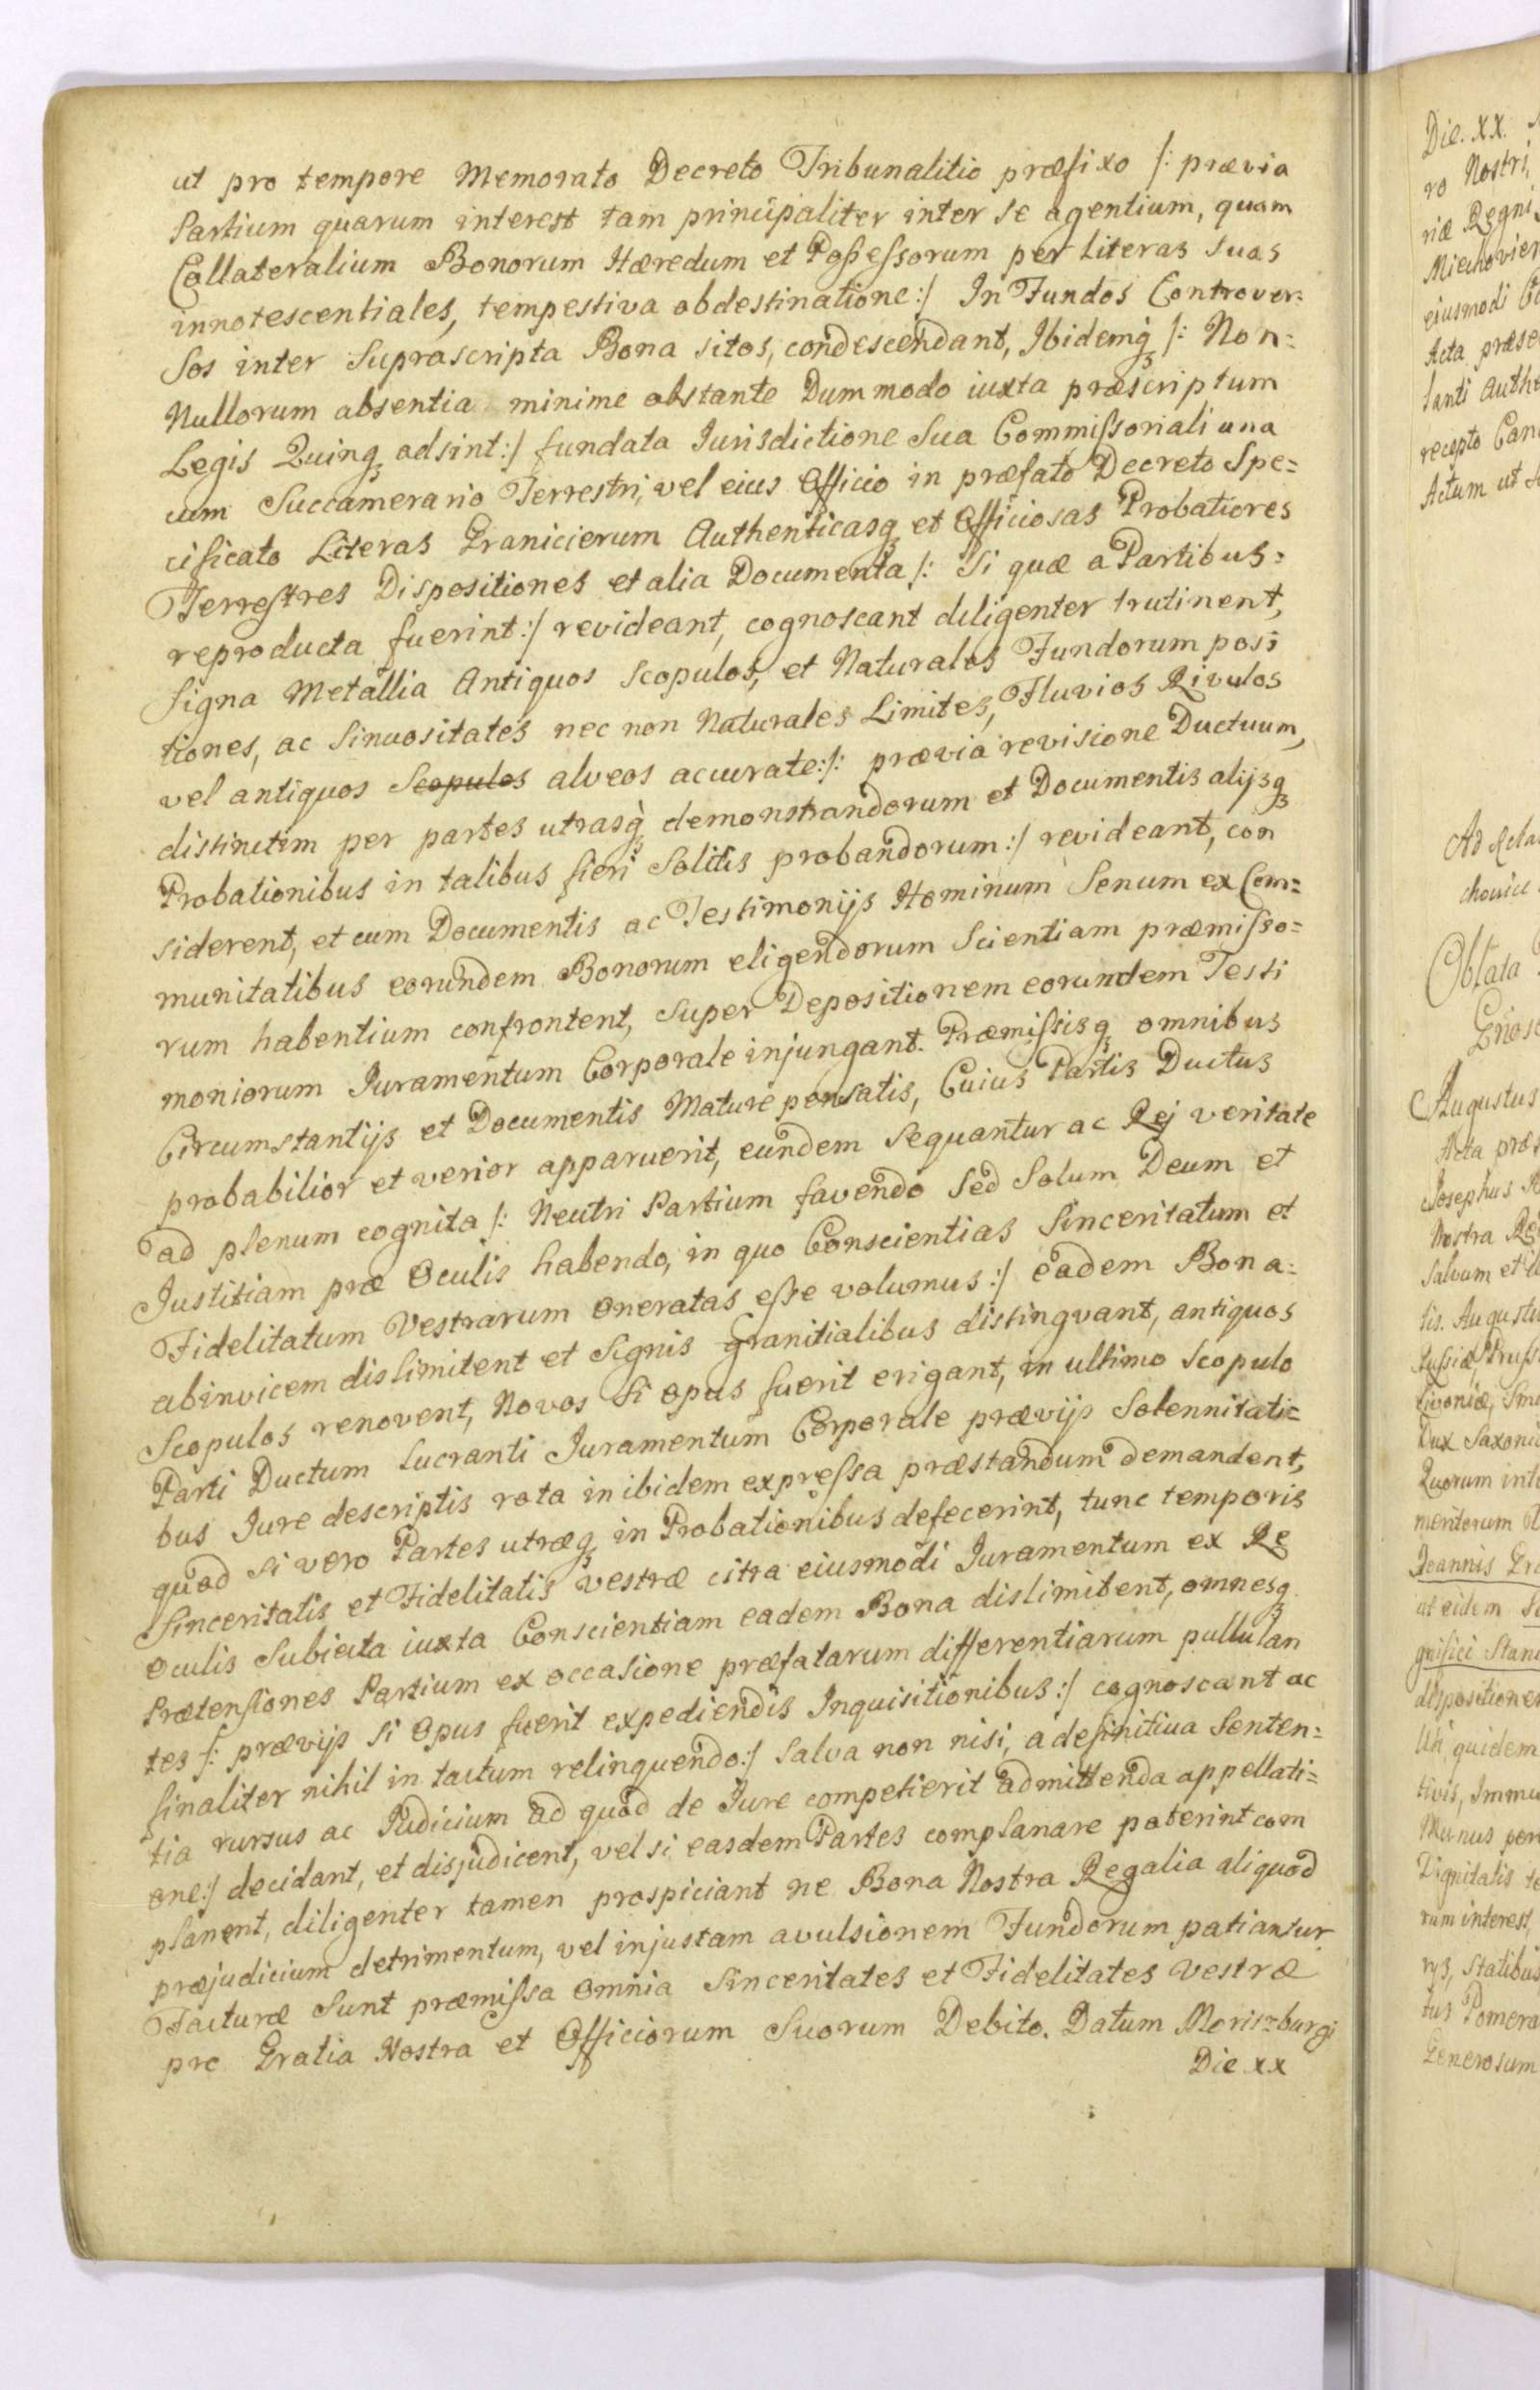 ut pro tempore Memorato Decreto Tribunalitio præfixo /: prævia
Partium quarum interest tam principaliter inter se agentium, quam
Collateralium Bonorum Hæredum et Possessorum per Literas suas
innotescentiales, tempestiva obdestinatione :/ In Fundos Controver=
sos inter Suprascripta Bona sitos, condescendant, Ibidemq̃ /: Non=
Nullorum absentia minime obstante Dummodo iuxta præscriptum
Legis Quinq adsint :/ fundata Jurisdictione Sua Commissoriali una
cum Succamerario Terrestri, vel eius Officio in præfato Decreto Spe=
cificato Literas Granicierum Authenticasq et Officiosas Probatiores
Terrestres Dispositiones et alia Documenta /: Si quæ a Partibus=
reproducta fuerint :/ revideant, cognoscant diligenter trutinent,
Signa Metallia Antiquos Scopulos, et Naturales Fundorum posi
tiones, ac Sinuositates nec non Naturales Limites, Fluvios Rivulos
vel antiquos Scopulos alveos accurate :/: prævia revisione Ductuum,
distinctim per partes utrasq̃ demonstrandorum et Documentis alijsq
Probationibus in talibus fieri Solitis probandorum :/ revideant, con
siderent, et cum Documentis ac Testimonijs Hominum Senum ex Com=
munitatibus eorundem Bonorum eligendorum Scientiam præmisso=
rum habentium confrontent, Super Depositionem eorundem Testi
moniorum Juramentum Corporale injungant. Præmissisq omnibus
Circumstantijs et Documentis Mature pensatis, Cuius Partis Ductus
probabilior et verior apparuerit, eundem Sequantur ac Rej veritate
ad plenum cognita /: Neutri Partium favendo Sed Solum Deum et
Justitiam præ Oculis habendo, in quo Conscientias Sinceritatum et
Fidelitatum Vestrarum Oneratas esse volumus :/ eadem Bona=
abinvicem dislimitent et Signis granitialibus distingvant, antiquos
Scopulos renovent, Novos Si opus fuerit erigant, in ultimo Scopulo
Parti Ductum Lucranti Juramentum Corporale prævijs Solennitati=
bus Jure descriptis rota in ibidem expressa præstandum demandent,
quod si vero Partes utræq in Probationibus defecerint, tunc temporis
Sinceritatis et Fidelitatis vestræ citra eiusmodi Juramentum ex Re
Oculis Subiecta iuxta Conscientiam eadem Bona dislimitent, omnesq
Prætensiones Partium ex occasione præfatarum differentiarum pullulan
tes /: prævijs Si Opus fuerit expediendis Inquisitionibus :/ cognoscant ac
finaliter nihil in tactum relinquendo :/ Salva non nisi, a definitiva Senten=
tia rursus ac Judicium ad quod de Jure competierit admittenda appellati=
one :/ decidant, et disjudicent, vel si easdem Partes complanare poterint com
planent, diligenter tamen prospiciant ne Bona Nostra Regalia aliquod
præjudicium detrimentum, vel injustam avulsionem Fundorum patiantur
Facturæ Sunt præmissa Omnia Sinceritates et Fidelitates Vestræ
pro Gratia Nostra et Officiorum Suorum Debito. Datum Moriszburgi
Die xx
Die. XX.
ro Nostri,
riæ Regni
eiusmodi
Acta
recepto
Actum ut
Oblata
Augustus
Acta
Josephus
Nostra
Salvum et
tis. Augustus
Dux Saxoniæ
Quorum
Joannis
ut eidem
dispositiones
quidem
Munus
Dignitatis
rum interest,
Generosum